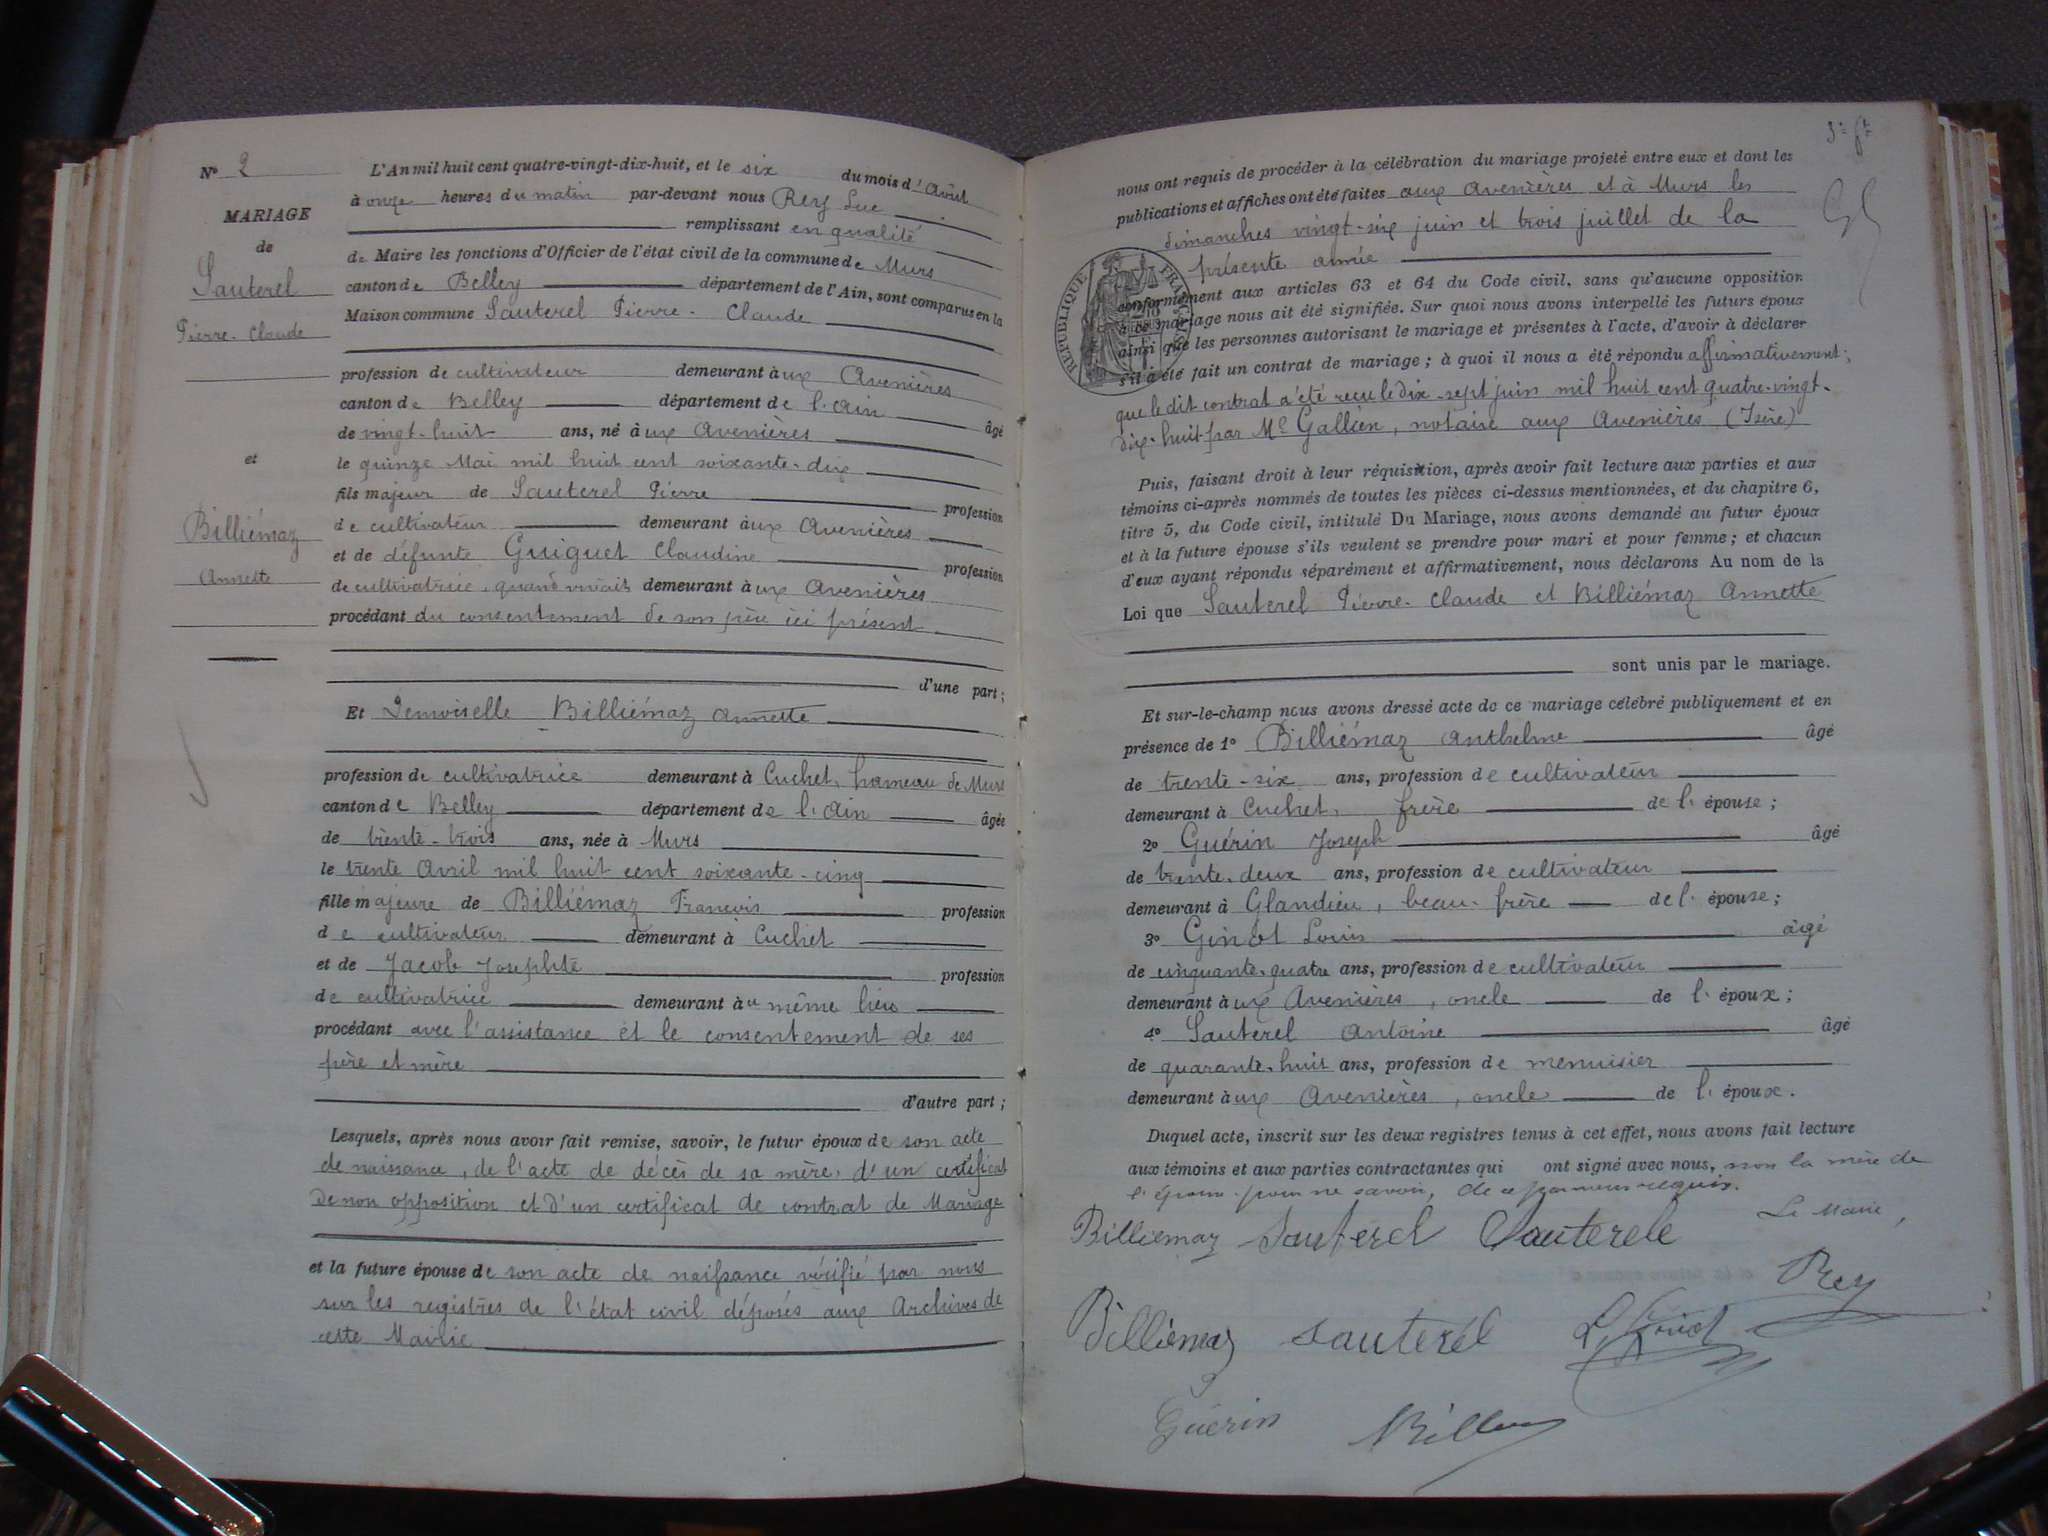 Nº 2
MARIAGE
de
Sauterel
Pierre-Claude
et
Billiémaz
Annette
L'An mil huit cent quatre-vingt-dix-huit, et le six du mois d'Août
à onze heures du matin par-devant nous Rey Luc
remplissant en qualité
de Maire les fonctions d'Officier de l'état civil de la commune de Murs
canton de Belley département de l'Ain, sont comparus en la
Maison commune Sauterel Pierre-Claude
profession de cultivateur demeurant à ux Avenières
canton de Belley département de l'Ain
de vingt-huit ans, né à ux Avenières âgé
le quinze Mai mil huit cent soixante-dix
fils majeur de Sauterel Pierre profession
de cultivateur demeurant à ux Avenières
et de défunte Guiguet Claudine profession
de cultivatrice, quand vivait demeurant à ux Avenières
procédant du consentement de son père ici présent
d'une part;
Et Demoiselle Billiémaz Annette
profession de cultivatrice demeurant à Cuchet, hameau de Murs
canton de Belley département de l'Ain âgée
de trente-trois ans, née à Murs
le trente Avril mil huit cent soixante-cinq
fille majeure de Billiémaz François profession
de cultivateur demeurant à Cuchet
et de Jacob Josephte profession
de cultivatrice demeurant à u même lieu
procédant avec l'assistance et le consentement de ses
père et mère
d'autre part;
Lesquels, après nous avoir fait remise, savoir, le futur époux de son acte
de naissance, de l'acte de décès de sa mère, d'un certificat
de non opposition et d'un certificat de contrat de Mariage
et la future épouse de son acte de naissance vérifié par nous
sur les registres de l'état civil déposés aux Archives de
cette Mairie
nous ont requis de procéder à la célébration du mariage projeté entre eux et dont les
publications et affiches ont été faites aux Avenières et à Murs les
dimanches vingt-six juin et trois juillet de la
présente année
RÉPUBLIQUE FRANÇAISE
conformément aux articles 63 et 64 du Code civil, sans qu'aucune opposition
à ce mariage nous ait été signifiée. Sur quoi nous avons interpellé les futurs époux
ainsi que les personnes autorisant le mariage et présentes à l'acte, d'avoir à déclarer
s'il a été fait un contrat de mariage; à quoi il nous a été répondu affirmativement;
que le dit contrat a été reçu le dix-sept juin mil huit cent quatre-vingt-
dix-huit par Me Gallien, notaire aux Avenières (Isère)
Puis, faisant droit à leur réquisition, après avoir fait lecture aux parties et aux
témoins ci-après nommés de toutes les pièces ci-dessus mentionnées, et du chapitre 6,
titre 5, du Code civil, intitulé Du Mariage, nous avons demandé au futur époux
et à la future épouse s'ils veulent se prendre pour mari et pour femme; et chacun
d'eux ayant répondu séparément et affirmativement, nous déclarons Au nom de la
Loi que Sauterel Pierre-Claude et Billiémaz Annette
sont unis par le mariage.
Et sur-le-champ nous avons dressé acte de ce mariage célébré publiquement et en
présence de 1º Billiémaz Anthelme âgé
de trente-six ans, profession de cultivateur
demeurant à Cuchet, frère de l'épouse;
2º Guérin Joseph âgé
de trente-deux ans, profession de cultivateur
demeurant à Glandieu, beau-frère de l'épouse;
3º Ginot Louis âgé
de cinquante-quatre ans, profession de cultivateur
demeurant à ux Avenières, oncle de l'époux;
4º Sauterel Antoine âgé
de quarante-huit ans, profession de menuisier
demeurant à ux Avenières, oncle de l'époux.
Duquel acte, inscrit sur les deux registres tenus à cet effet, nous avons fait lecture
aux témoins et aux parties contractantes qui ont signé avec nous, non la mère de
l'épouse pour ne savoir, de ce par nous requis.
Le Maire,
Billiemaz Sauterel Sauterele
Rey
Billiemaz Sauterel L Ginot
Guérin